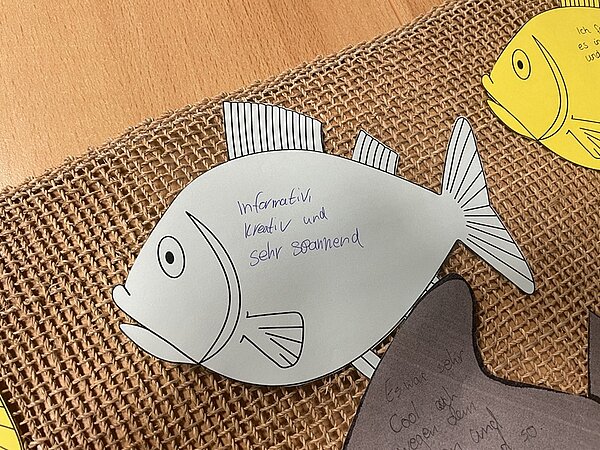 Informativ,
kreativ und
sehr spannend
Ich
es in
und
Es war sehr
Cool
wegen dem
und
so.